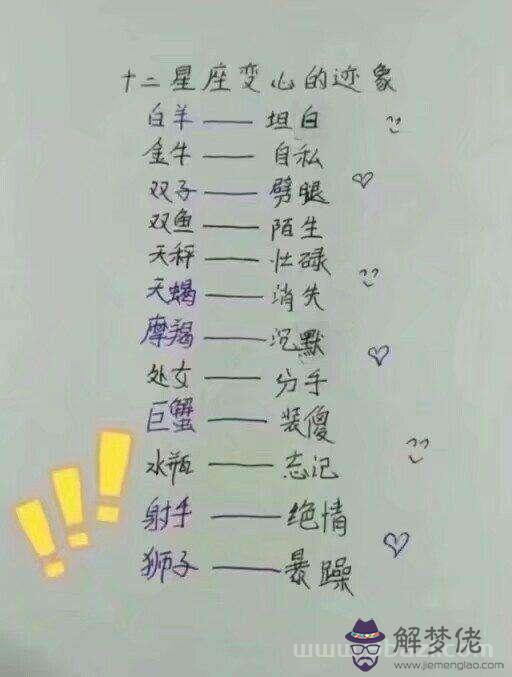 十二星座变心的迹象
白羊——坦白
金牛——自私
双子——劈腿
双鱼——陌生
天秤——忙碌
天蝎——消失
摩羯——沉默
处女——分手
巨蟹——装傻
水瓶——忘记
射手——绝情
狮子——暴躁
解梦佬
www.jiemenglao.com